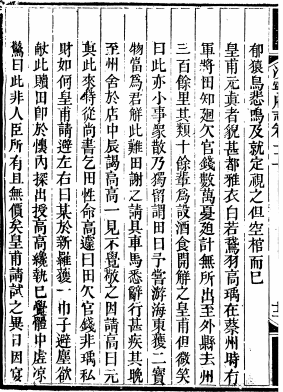 御猿鳥悲鳴及就定視之但空棺而已
皇甫元真者貌甚都雅衣白若鵞羽高瑀在蔡州時有
軍將田知廻欠官錢數萬憂廹計無所出至外縣去州
三百餘里其類十餘輩為設酒食開解之皇甫但微笑
曰此亦小事衆散乃獨留謂田曰予嘗游海東獲二寶
物當為君解此難田謝之請具車馬悉辭行甚疾其晚
至州舍於店中辰謁高高一見不覺敬之因請高曰元
真此來特從尚書乞田性命高遽曰田欠官錢非瑀私
財如何皇甫請避左右曰某於新羅獲一巾子辟塵欲
獻此贖田即於懷內探出授高高纔執已覺體中虛凉
驚曰此非人臣所有且無價矣皇甫請試之異日因宴